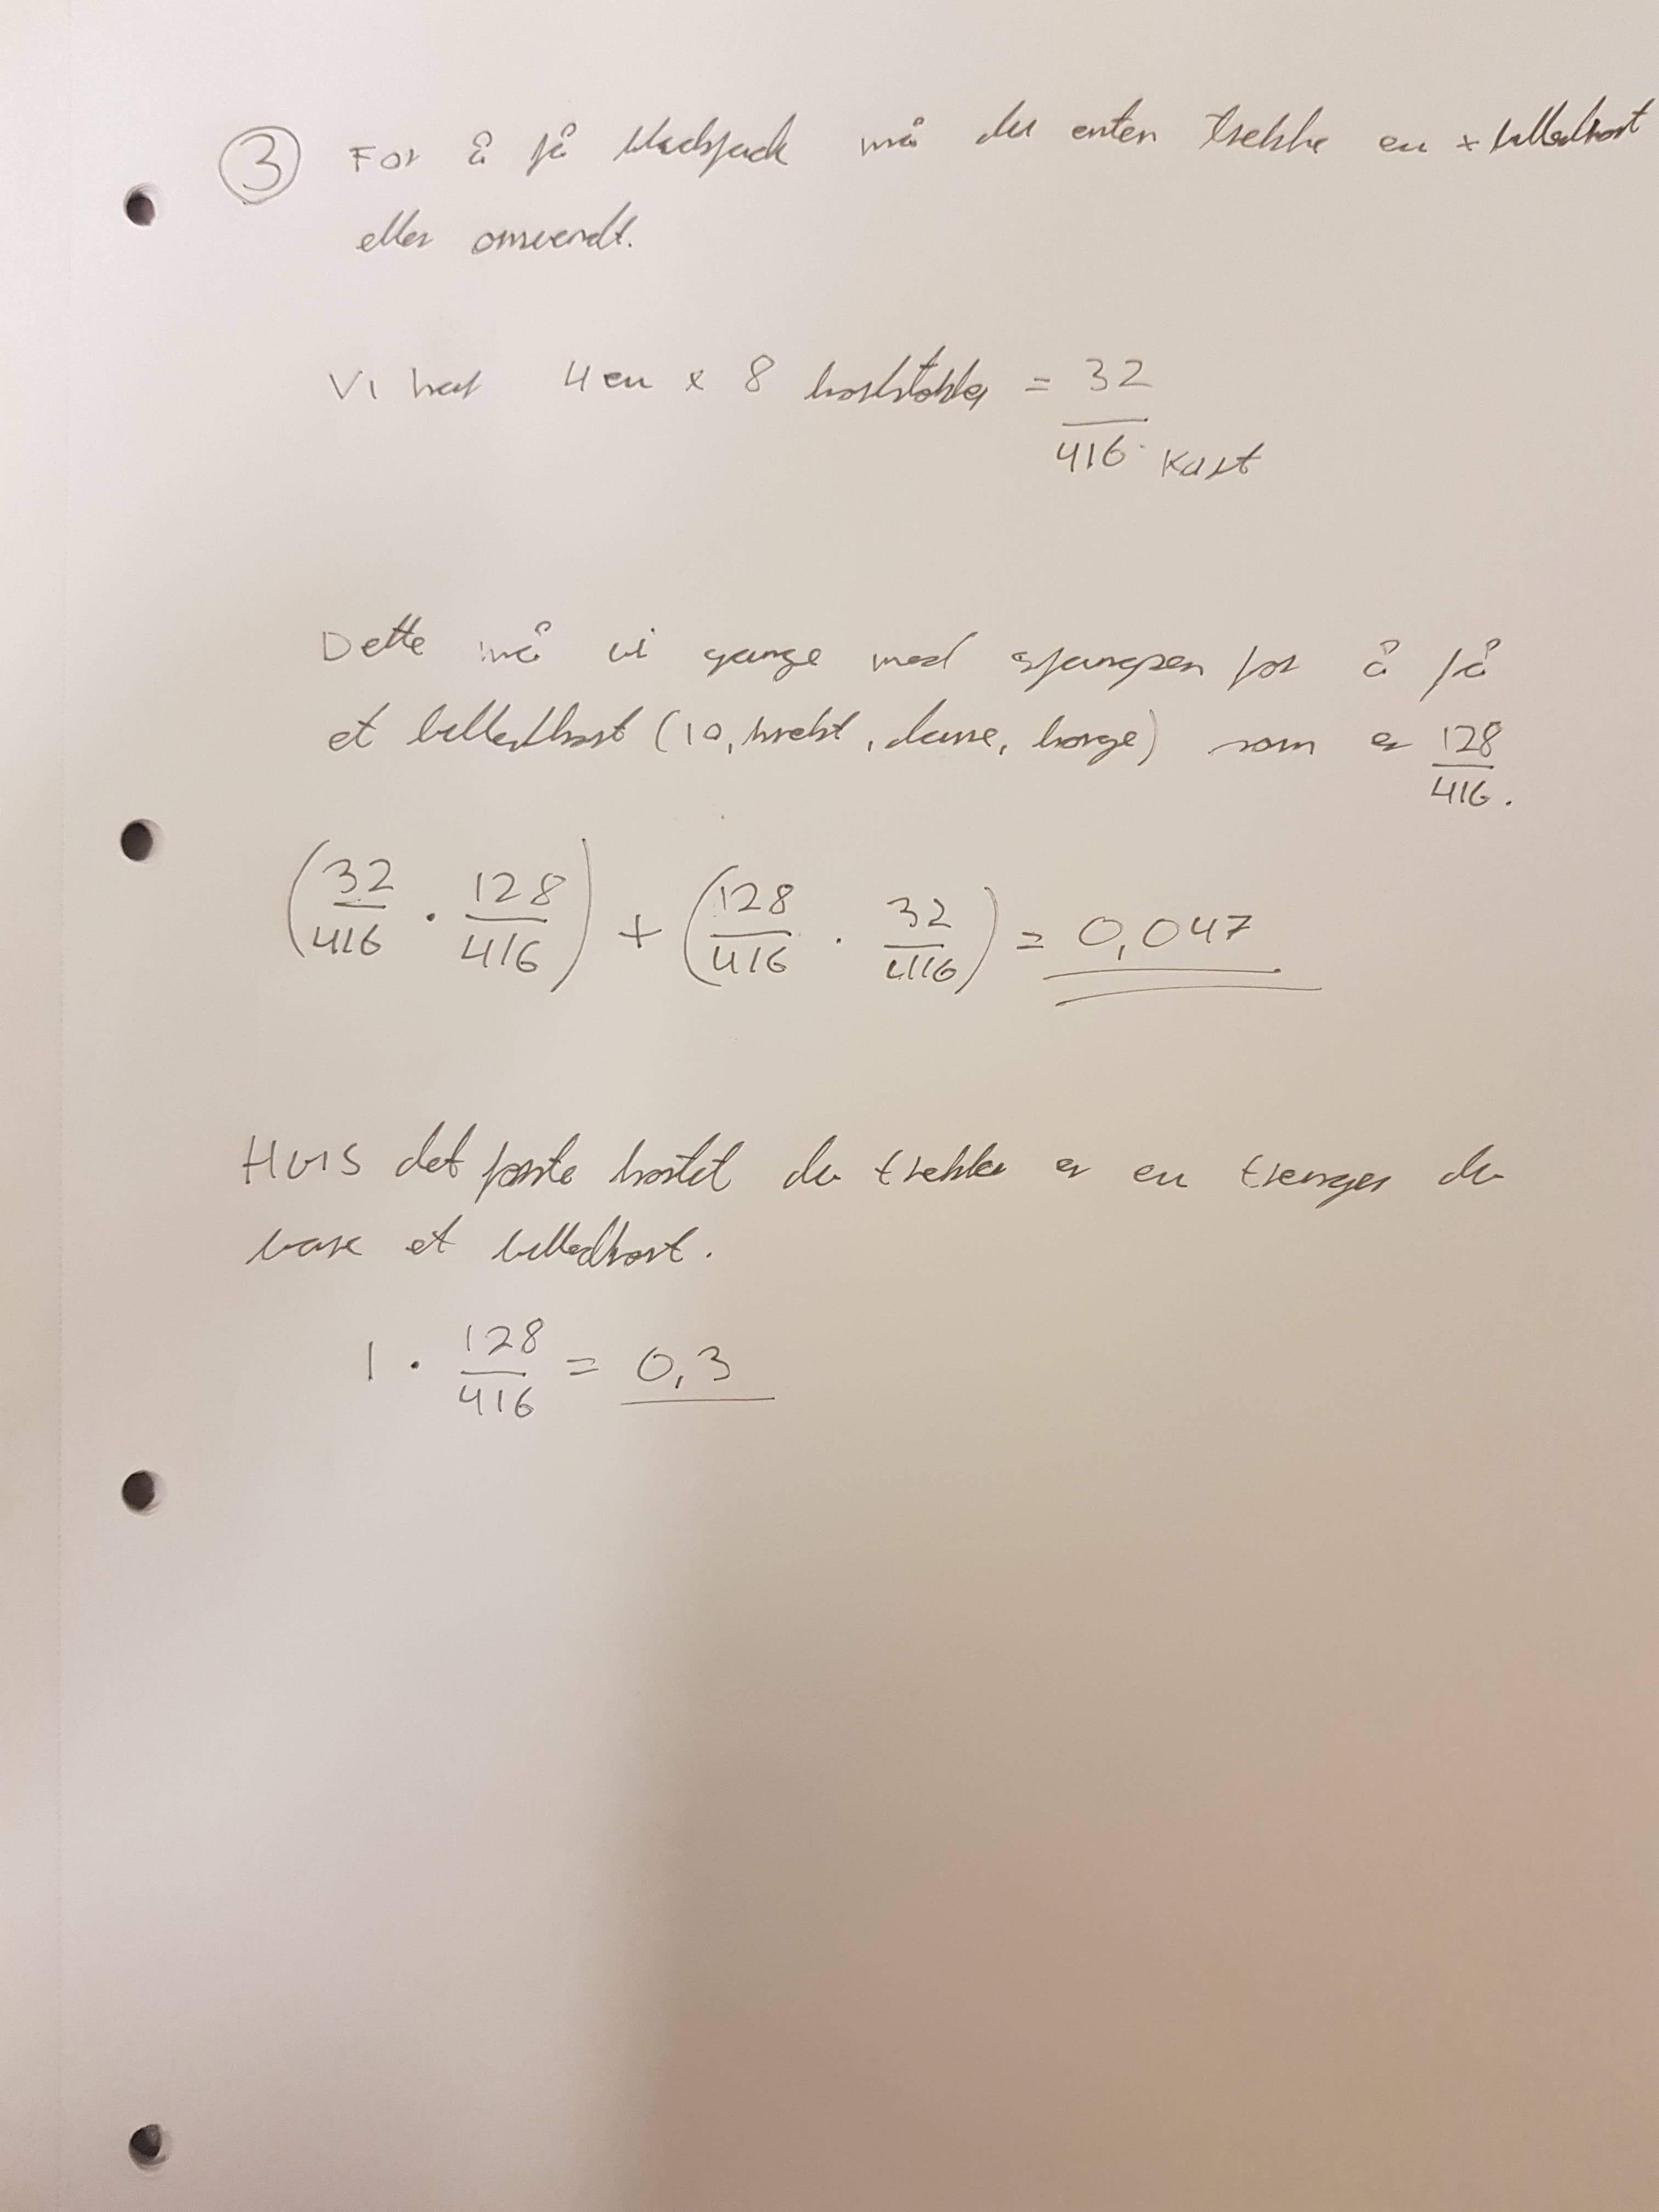 ③ For å få blackjack må du enten trekke en + billedkort
eller omvendt.
Vi har 4 en x 8 kortstokker = 32
416 kort
Dette må vi gange med sjangsen for å få
et billedkort (10, knekt, dame, konge) som er 128
416.
(32/416 · 128/416) + (128/416 · 32/416) = 0,047
Hvis det første kortet du trekker er en trenger du
bare et billedkort.
1 · 128/416 = 0,3